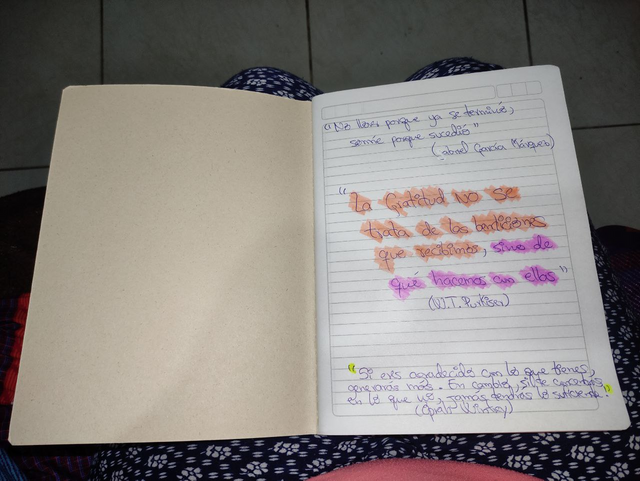 "No llores porque ya se terminó,
sonríe porque sucedió"
(Gabriel García Márquez)
"La Gratitud NO se
trata de las bendiciones
que recibimos, sino de
qué hacemos con ellas"
(W.T. Purkiser)
"Si eres agradecido con lo que tienes,
generarás más. En cambio, si te concentras
en lo que no, jamás tendrás lo suficiente."
(Oprah Winfrey)